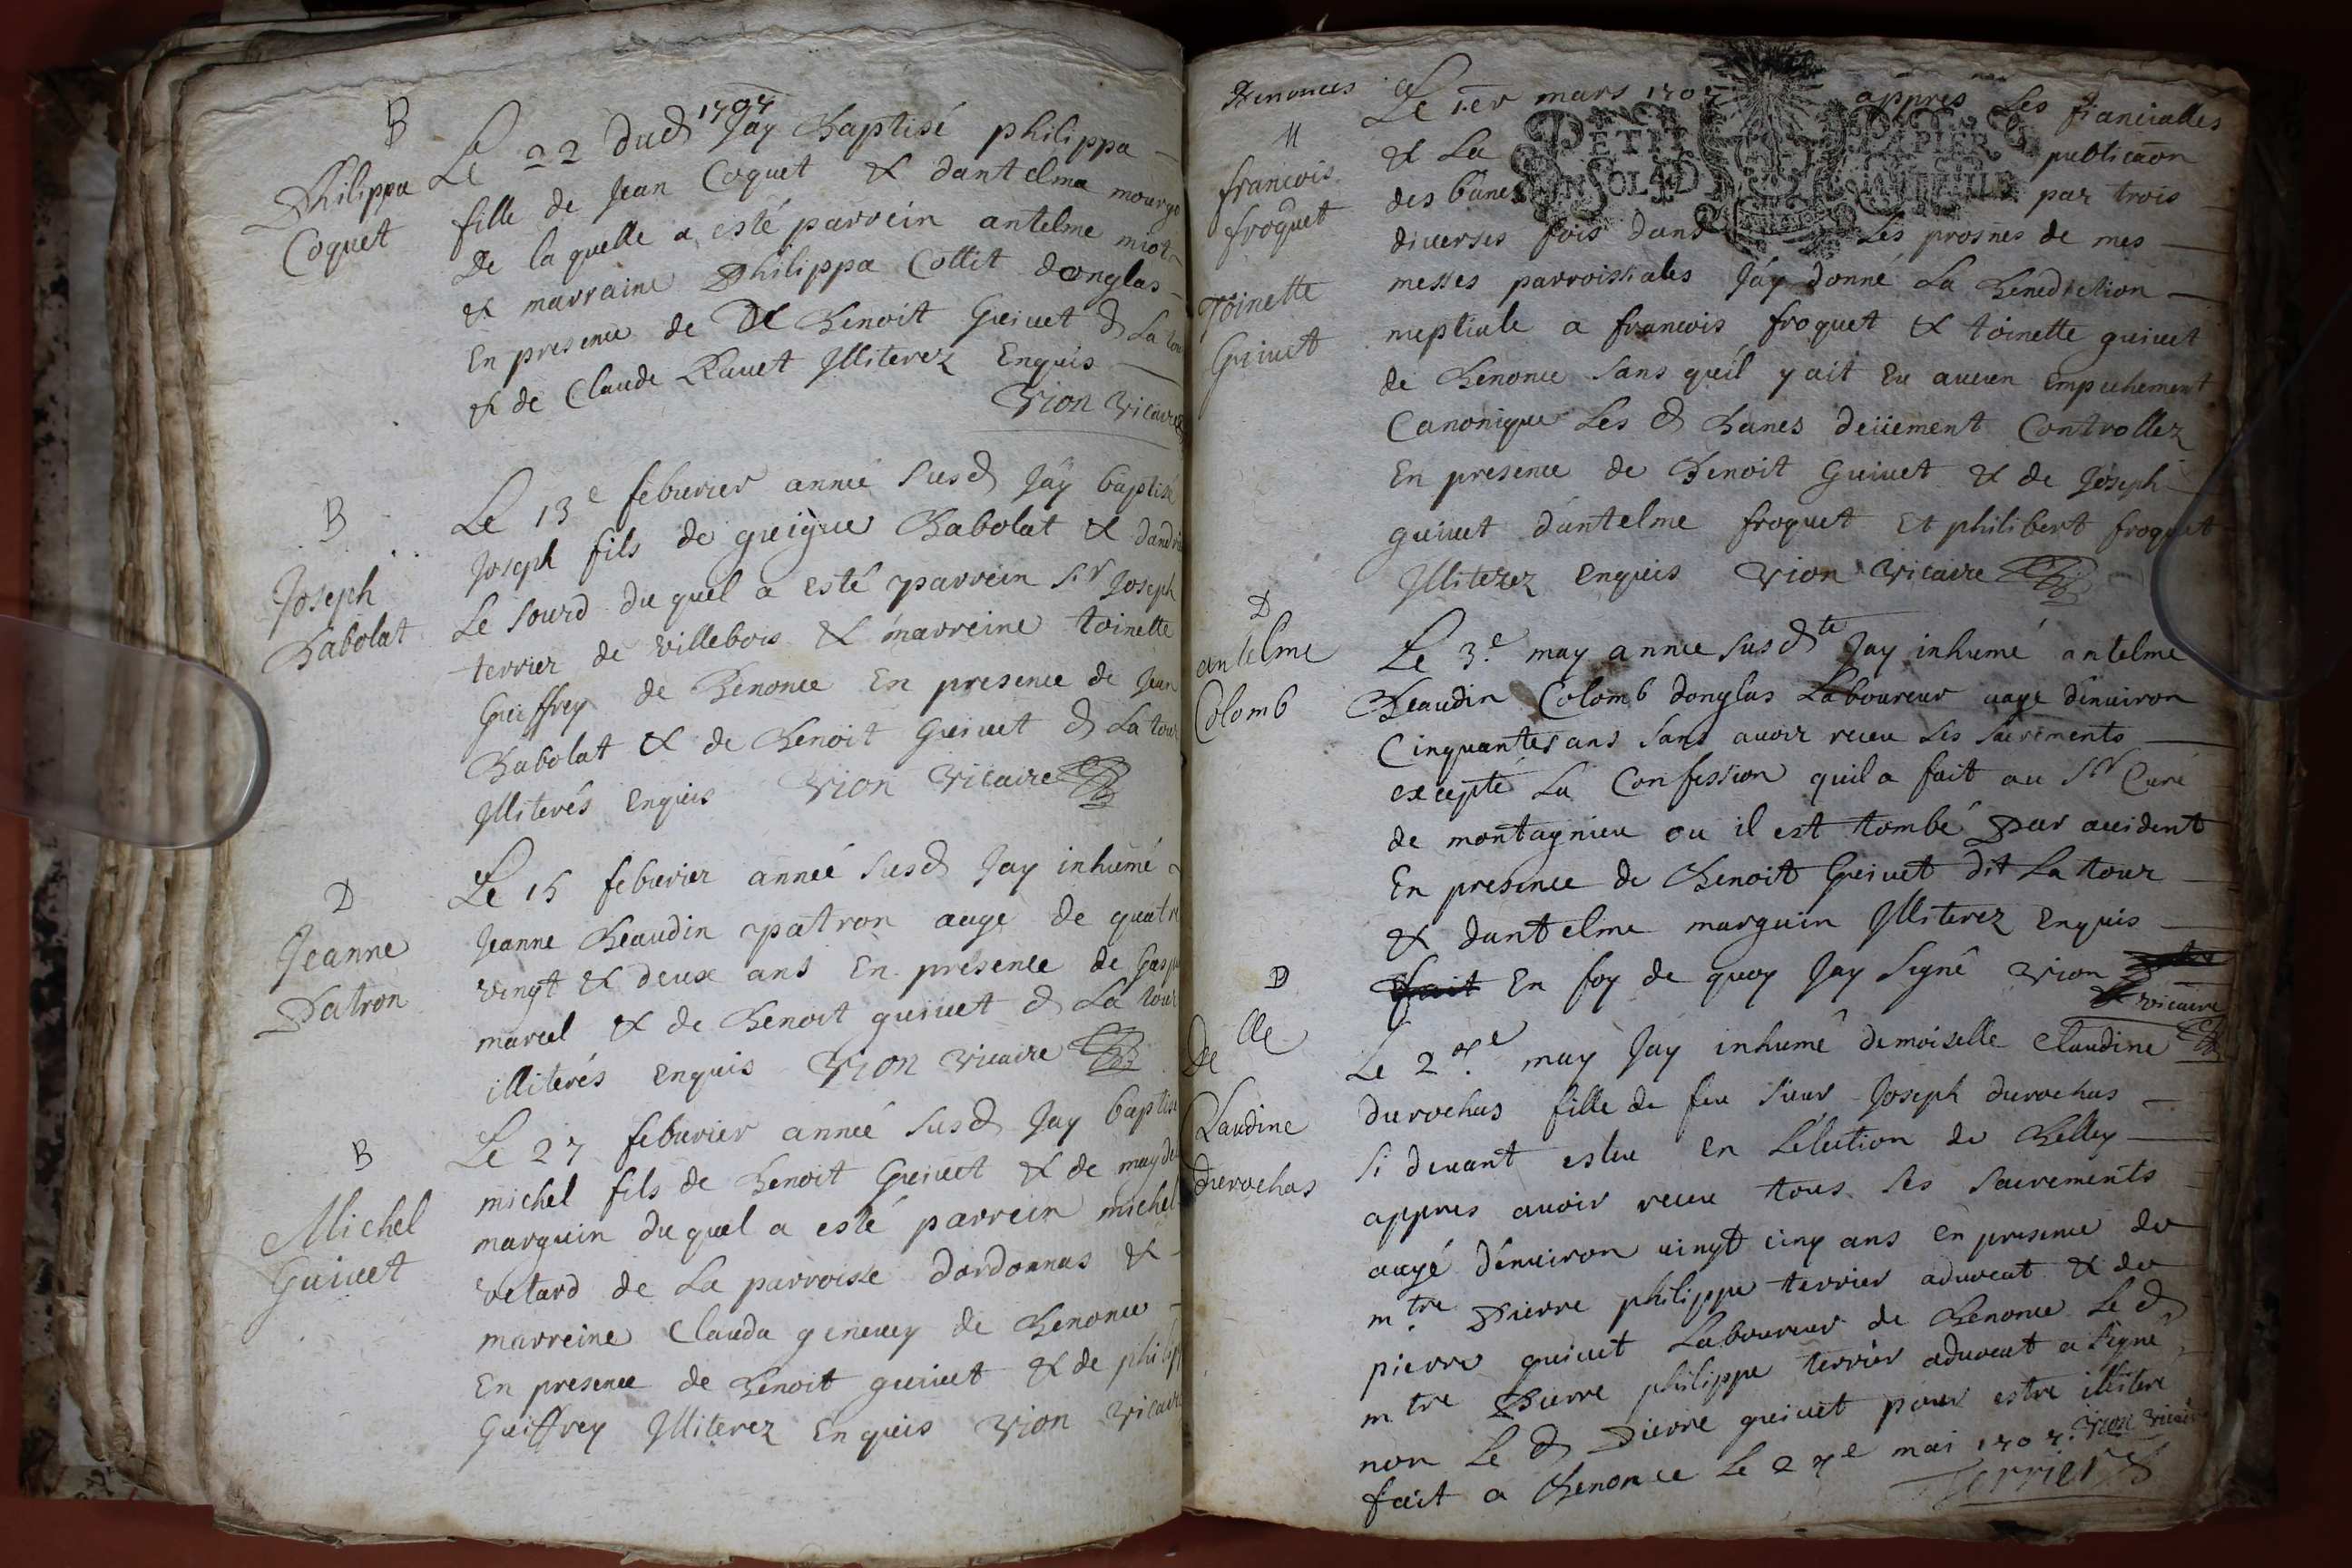 B
Philippa
Coquet
1707
Le 22 dud Jay Baptisé philippa
fille de Jean Coquet & dantelma mourge
De la quelle a esté parrein antelme miot
& marraine Philippa Collit donglas
En presence de Benoit Guiuet d La tour
& de Claude Rauet Illiterez Enquis
Vion vicaire
B
Joseph
Babolat
Le 13e feburier année susd Jay baptisé
Joseph fils de greigue Babolat & dandri
Le sourd du quel a esté parrein sr Joseph
terrier de villebois & marreine toinette
Guiffrey de Benonce En presence de Jean
Babolat & de Benoit Guiuet d La tour
Illiterés Enquis Vion Vicaire
D
Jeanne
Patron
Le 15 feburier année susd Jay inhumé
Jeanne Beaudin patron aage de quatre
vingt & deux ans En presence de Gasp
marcel & de Benoit guiuet d La tour
illiterés enquis Vion vicaire
B
Michel
Guiuet
Le 27 feburier année susd Jay baptise
michel fils de Benoit Guiuet & de mayde
marguin du quel a esté parrein michel
vetard de La parroisse dordonnas &
marreine Clauda geneuey de Benonce
En presence de Benoit guiuet & de philip
Guiffrey Illiterez Enquis Vion vicaire
Benonces
M
francois
froquet
Toinette
Guiuet
Le 1er mars 1707 appres Les fiancialles
& La publicaon
des banes par trois
diuerses fois dans Les prosnes de mes
messes parroissiales Jay donné La Benediction
nuptiale a francois froquet & toinette guiuet
de Benonce sans quil y ait Eu aucun Empechement
Canonique Les d Banes deüement Controllez
En presence de Benoit Guiuet & de Joseph
guiuet dantelme froquet Et philibert froquet
Illiterez Enquis Vion Vicaire
PETIT PAPIER
UN SOL 4 D
D
antelme
Colomb
Le 3e may annee susdte Jay inhumé antelme
Beaudin Colomb donglas Laboureur aage denuiron
Cinquantes ans sans auoir receu Les sacrements
excepté La Confession quil a fait au Sr Curé
de montagnieu ou il est tombé Par accident
En presence de Benoit Guiuet dit La tour
& dantelme marguin Illiterez Enquis
fait En foy de quoy Jay signé Vion
& vicaire
D
Delle
Claudine
durochas
Le 27e may Jay inhumé demoiselle Claudine
durochas fille de feu sieur Joseph durochas
si deuant esleu en Lelection de Belley
appres auoir receu tous ses sacrements
aagé denuiron uingt cinq ans en presence de
mtre Pierre philippe terrier aduocat & de
pierre guiuet Laboureur de Benonce Le d
mtre Pierre philippe terrier aduocat a signé
non Le d Pierre guiuet pour estre illitere
fait a Benonce Le 27e mai 1707. Vion vicaire
Terrier